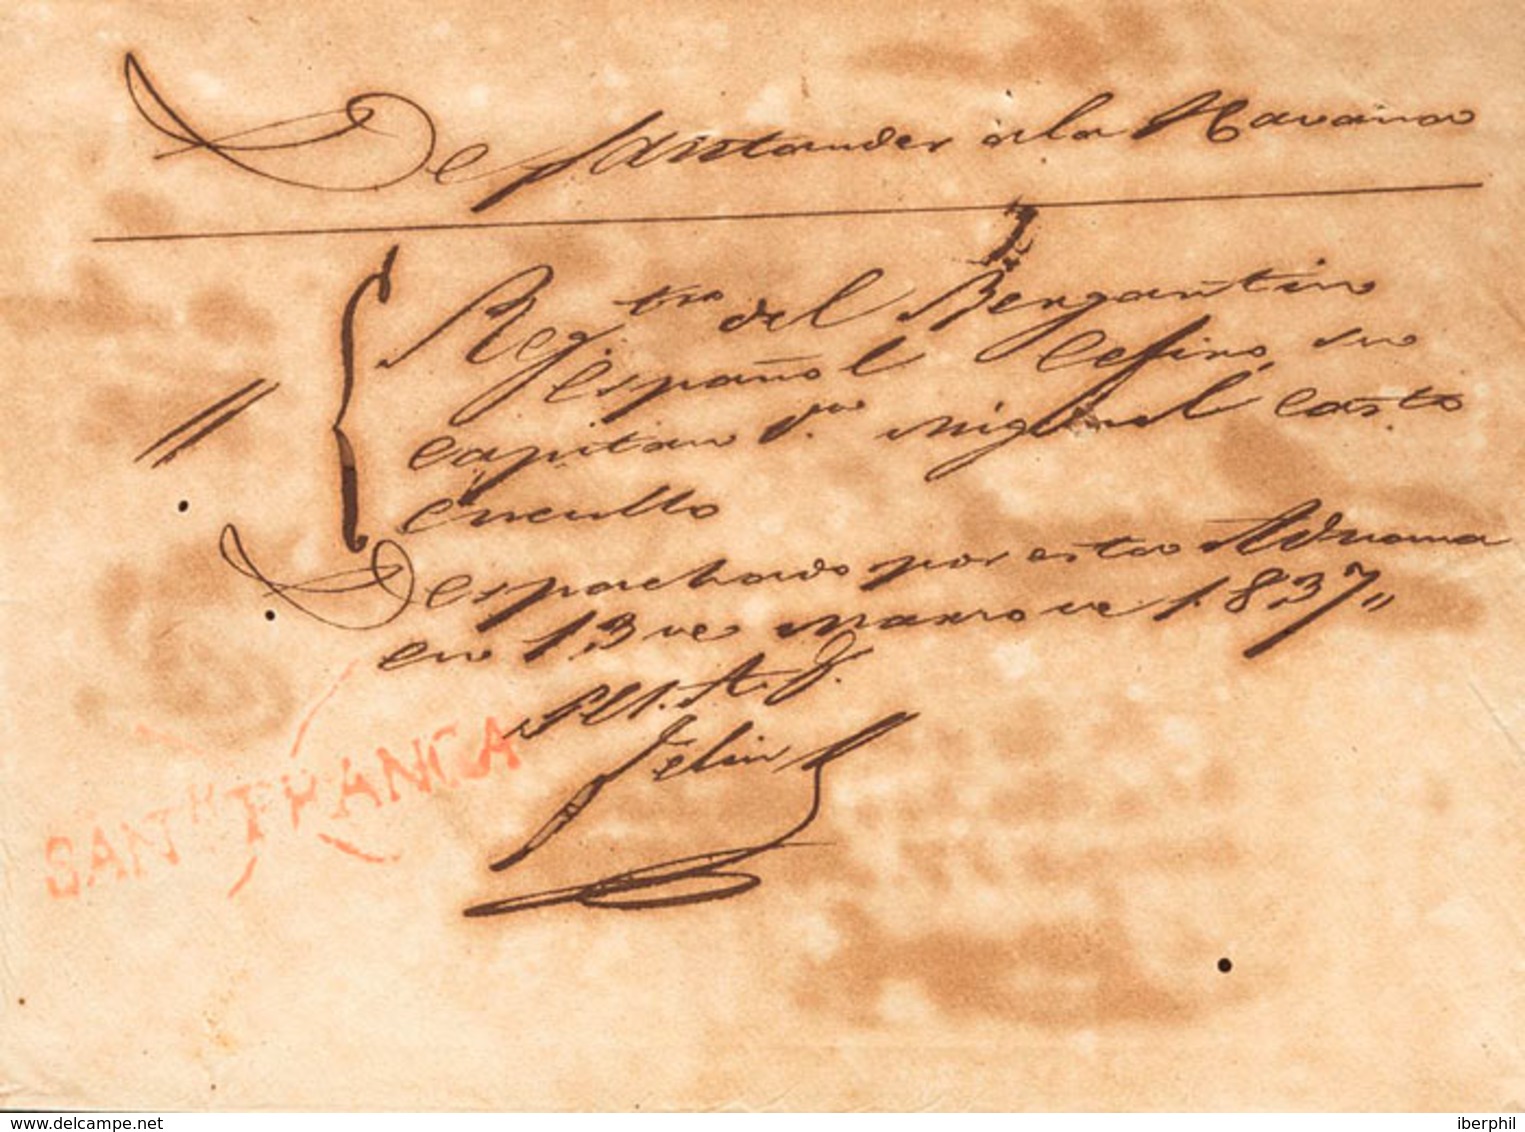 De Santander á la Havana
Reg.tro del Bergantin
español Cefiro, su
capitan D.n Miguel Casto
Despachado por esta Aduana
en 13 de Marzo de 1.837,,
SAN.R FRANCA
delcampe.net
iberphil